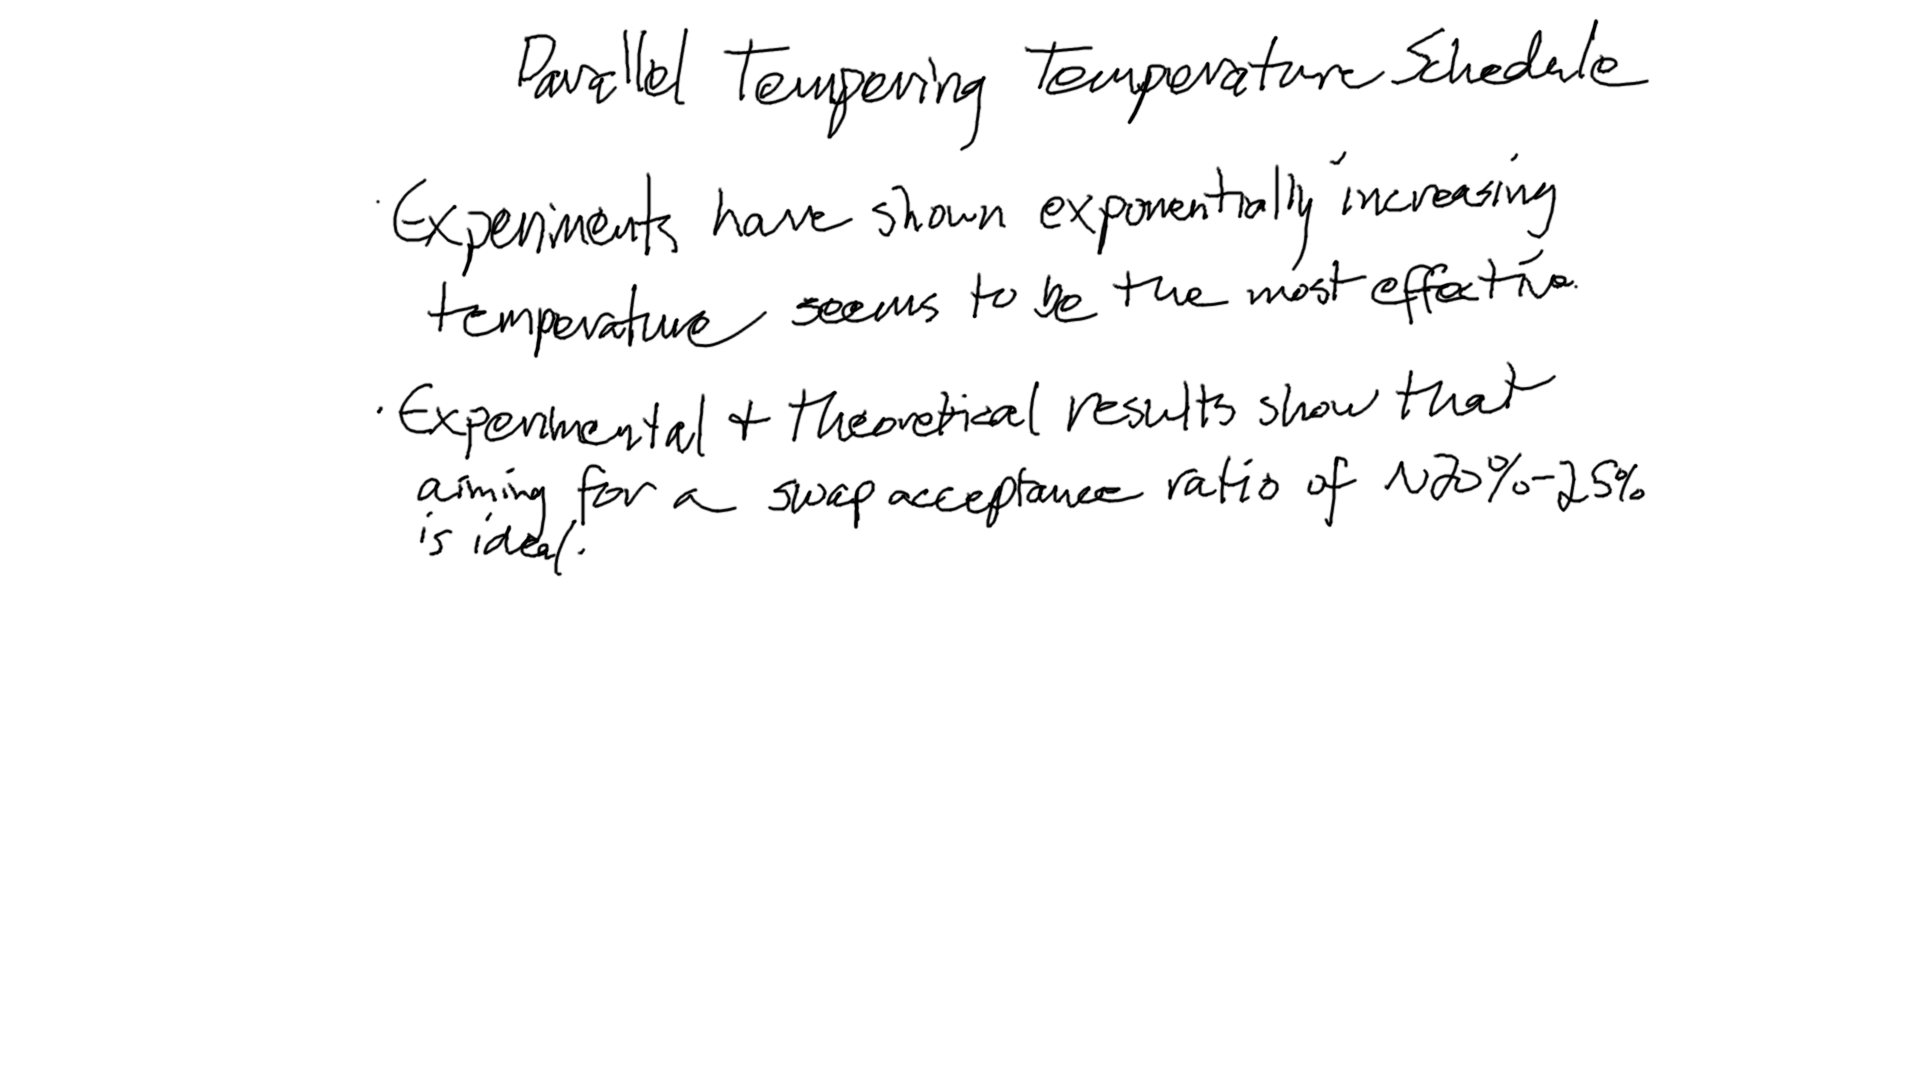 Parallel Tempering Temperature Schedule
· Experiments have shown exponentially increasing
temperature seems to be the most effective.
· Experimental + theoretical results show that
aiming for a swap acceptance ratio of ~20%-25%
is ideal.